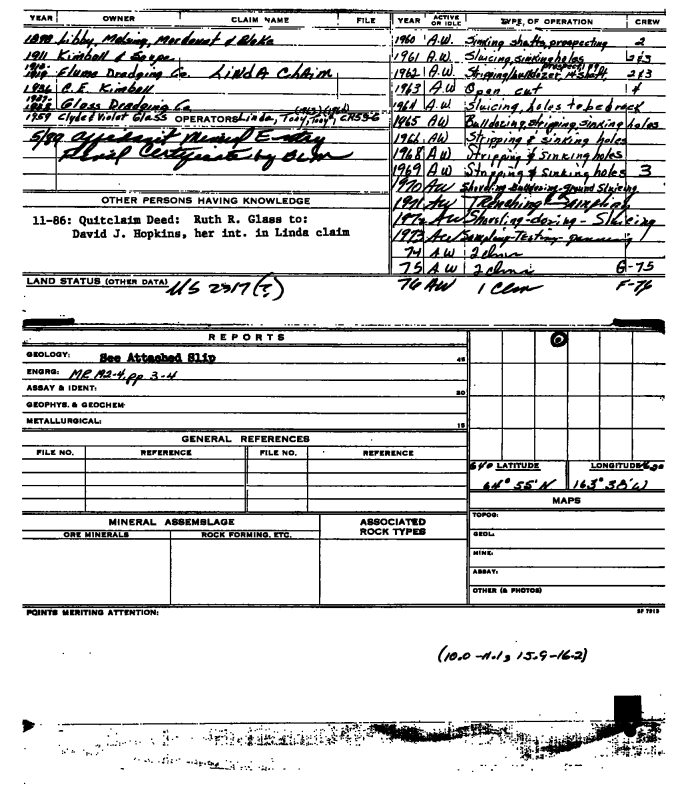 YEAR OWNER CLAIM NAME FILE
1898 Libby, Melsing, Mordaunt & Blake
1911 Kimball & Soupe
1919 Flume Dredging Co. LINDA Claim
1936 C.E. Kimball
Glass Dredging Co
1959 Clyde & Violet Glass OPERATORS Linda, Tony,
5/89 Affidavit Mineral Entry
Final Certificate by BLM
OTHER PERSONS HAVING KNOWLEDGE
11-86: Quitclaim Deed: Ruth R. Glass to:
David J. Hopkins, her int. in Linda claim
LAND STATUS (OTHER DATA) MS 2317 (?)
YEAR ACTIVE OR IDLE TYPE OF OPERATION CREW
1960 A.W. Sinking shafts, prospecting 2
1961 A.W. Sluicing, sinking holes 2&3
1962 A.W. Stripping/bulldozer, 14' shaft, 2&3
1963 A.W. Open cut 4
1964 A.W. Sluicing, holes to bedrock
1965 A.W. Bulldozing, stripping, sinking holes
1966 A.W. Stripping & sinking holes
1968 A.W. Stripping & sinking holes
1969 A.W. Stripping & sinking holes 3
1970 AW Shoveling-Bulldozing-ground Sluicing
1971 AW Trenching & Sampling
1972 AW Shoveling-dozing - Sluicing
1973 AW Sampling-Testing-panning
74 AW 2 clms
75 AW 2 clms G-75
76 AW 1 Clm F-76
REPORTS
GEOLOGY: See Attached Slip 45
ENGRG: MR 192-4, pp. 3-4
ASSAY & IDENT: 30
GEOPHYS. & GEOCHEM.
METALLURGICAL: 15
GENERAL REFERENCES
FILE NO. REFERENCE FILE NO. REFERENCE
64° LATITUDE LONGITUDE
64° 55' N 163° 38' W
MAPS
TOPOG:
GEOL:
MINE:
ASSAY:
OTHER (& PHOTOS)
MINERAL ASSEMBLAGE ASSOCIATED ROCK TYPES
ORE MINERALS ROCK FORMING, ETC.
POINTS MERITING ATTENTION: SF 7913
(10.0-11.1, 15.9-16.2)